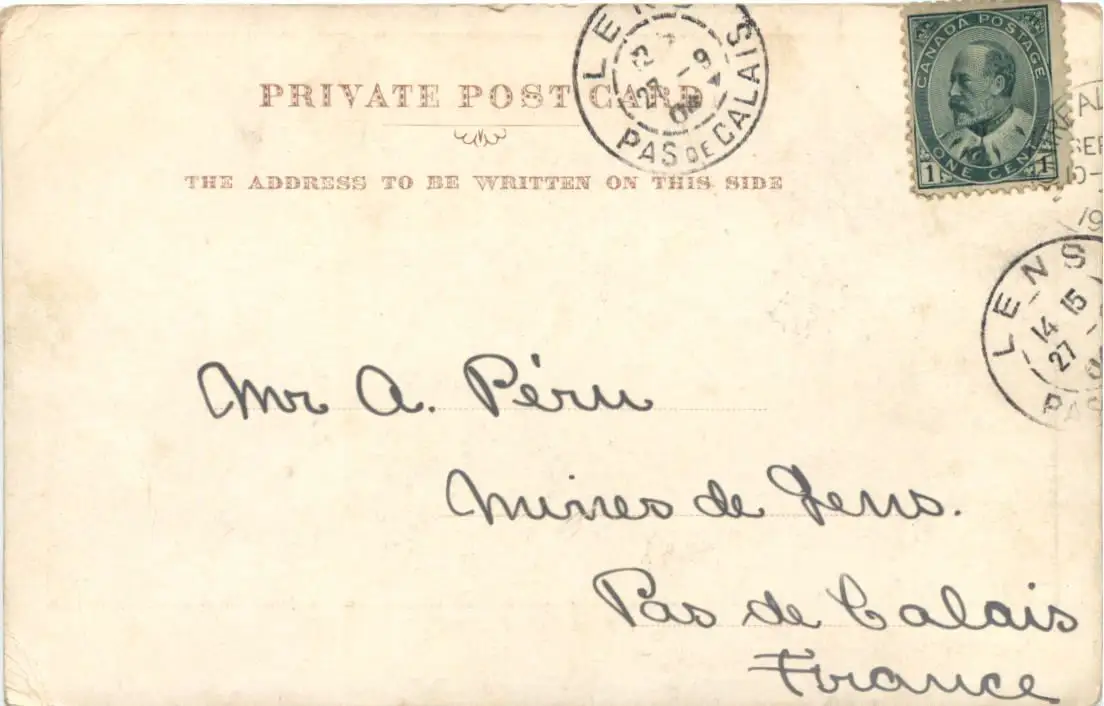 PRIVATE POST CARD
THE ADDRESS TO BE WRITTEN ON THIS SIDE
LENS
27 -9
PAS DE CALAIS
CANADA POSTAGE
1 ONE CENT 1
LENS
14 15
27
PAS
Mr A. Péru
Mines de Lens.
Pas de Calais
France